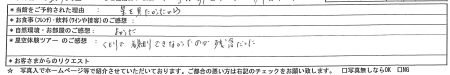 * 当館をご予約された理由 : 星を見たかったから
* お食事(フレンチ)・飲料(ワインや接客)のご感想 :
* 自然環境・お部屋のご感想 : よかった
* 星空体験ツアー のご感想 : くもりで 観測できなかったのが 残念だった
* お客さまからのリクエスト
☆ 写真入でホームページ等で紹介させていただいております。ご都合の悪い方は右記のチェックをお願い致します。 □写真無しならOK □NG